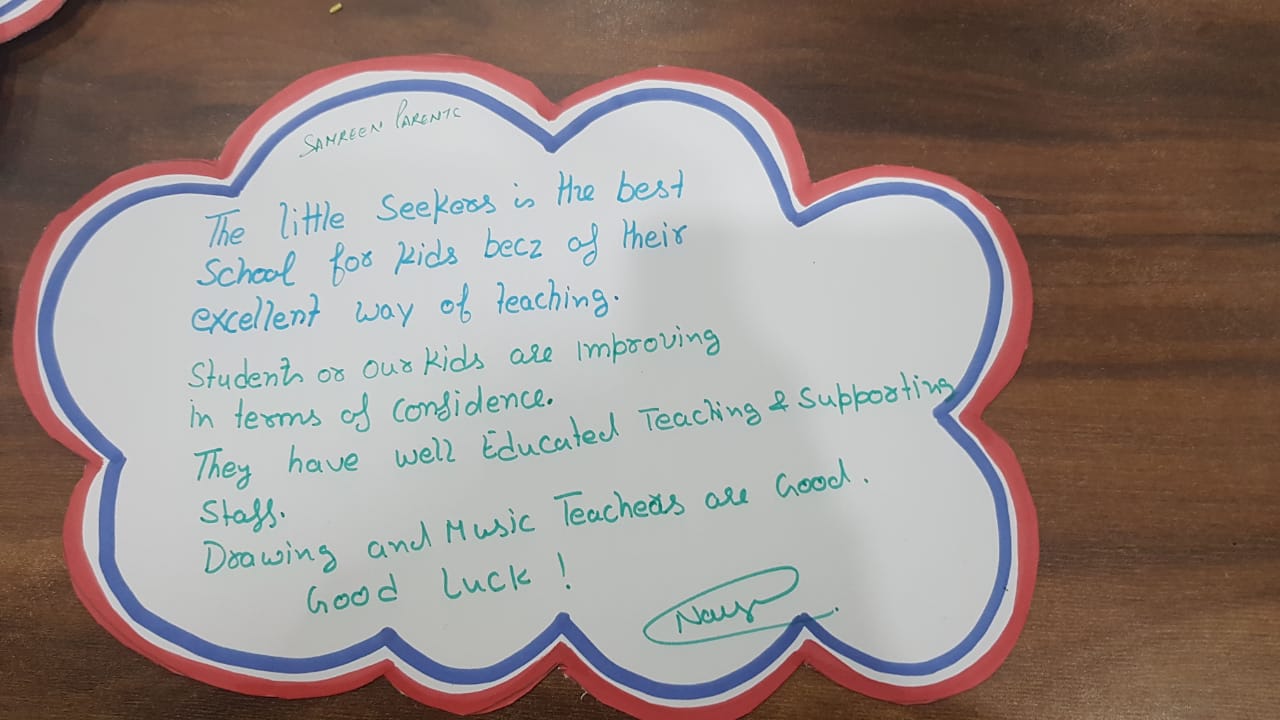 SAMREEN PARENTS
The little Seekers is the best
School for kids becz of their
excellent way of teaching.
Students or our kids are improving
in terms of confidence.
They have well Educated Teaching & Supporting
Staff.
Drawing and Music Teachers are Good.
Good Luck !